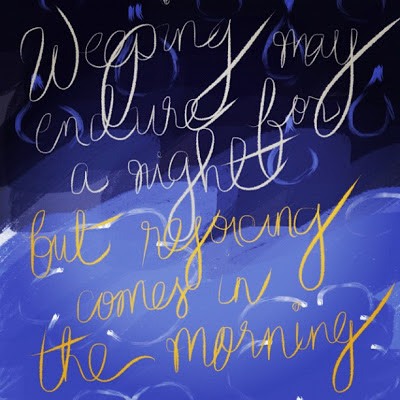 Weeping may
endure for
a night
but rejoicing
comes in
the morning